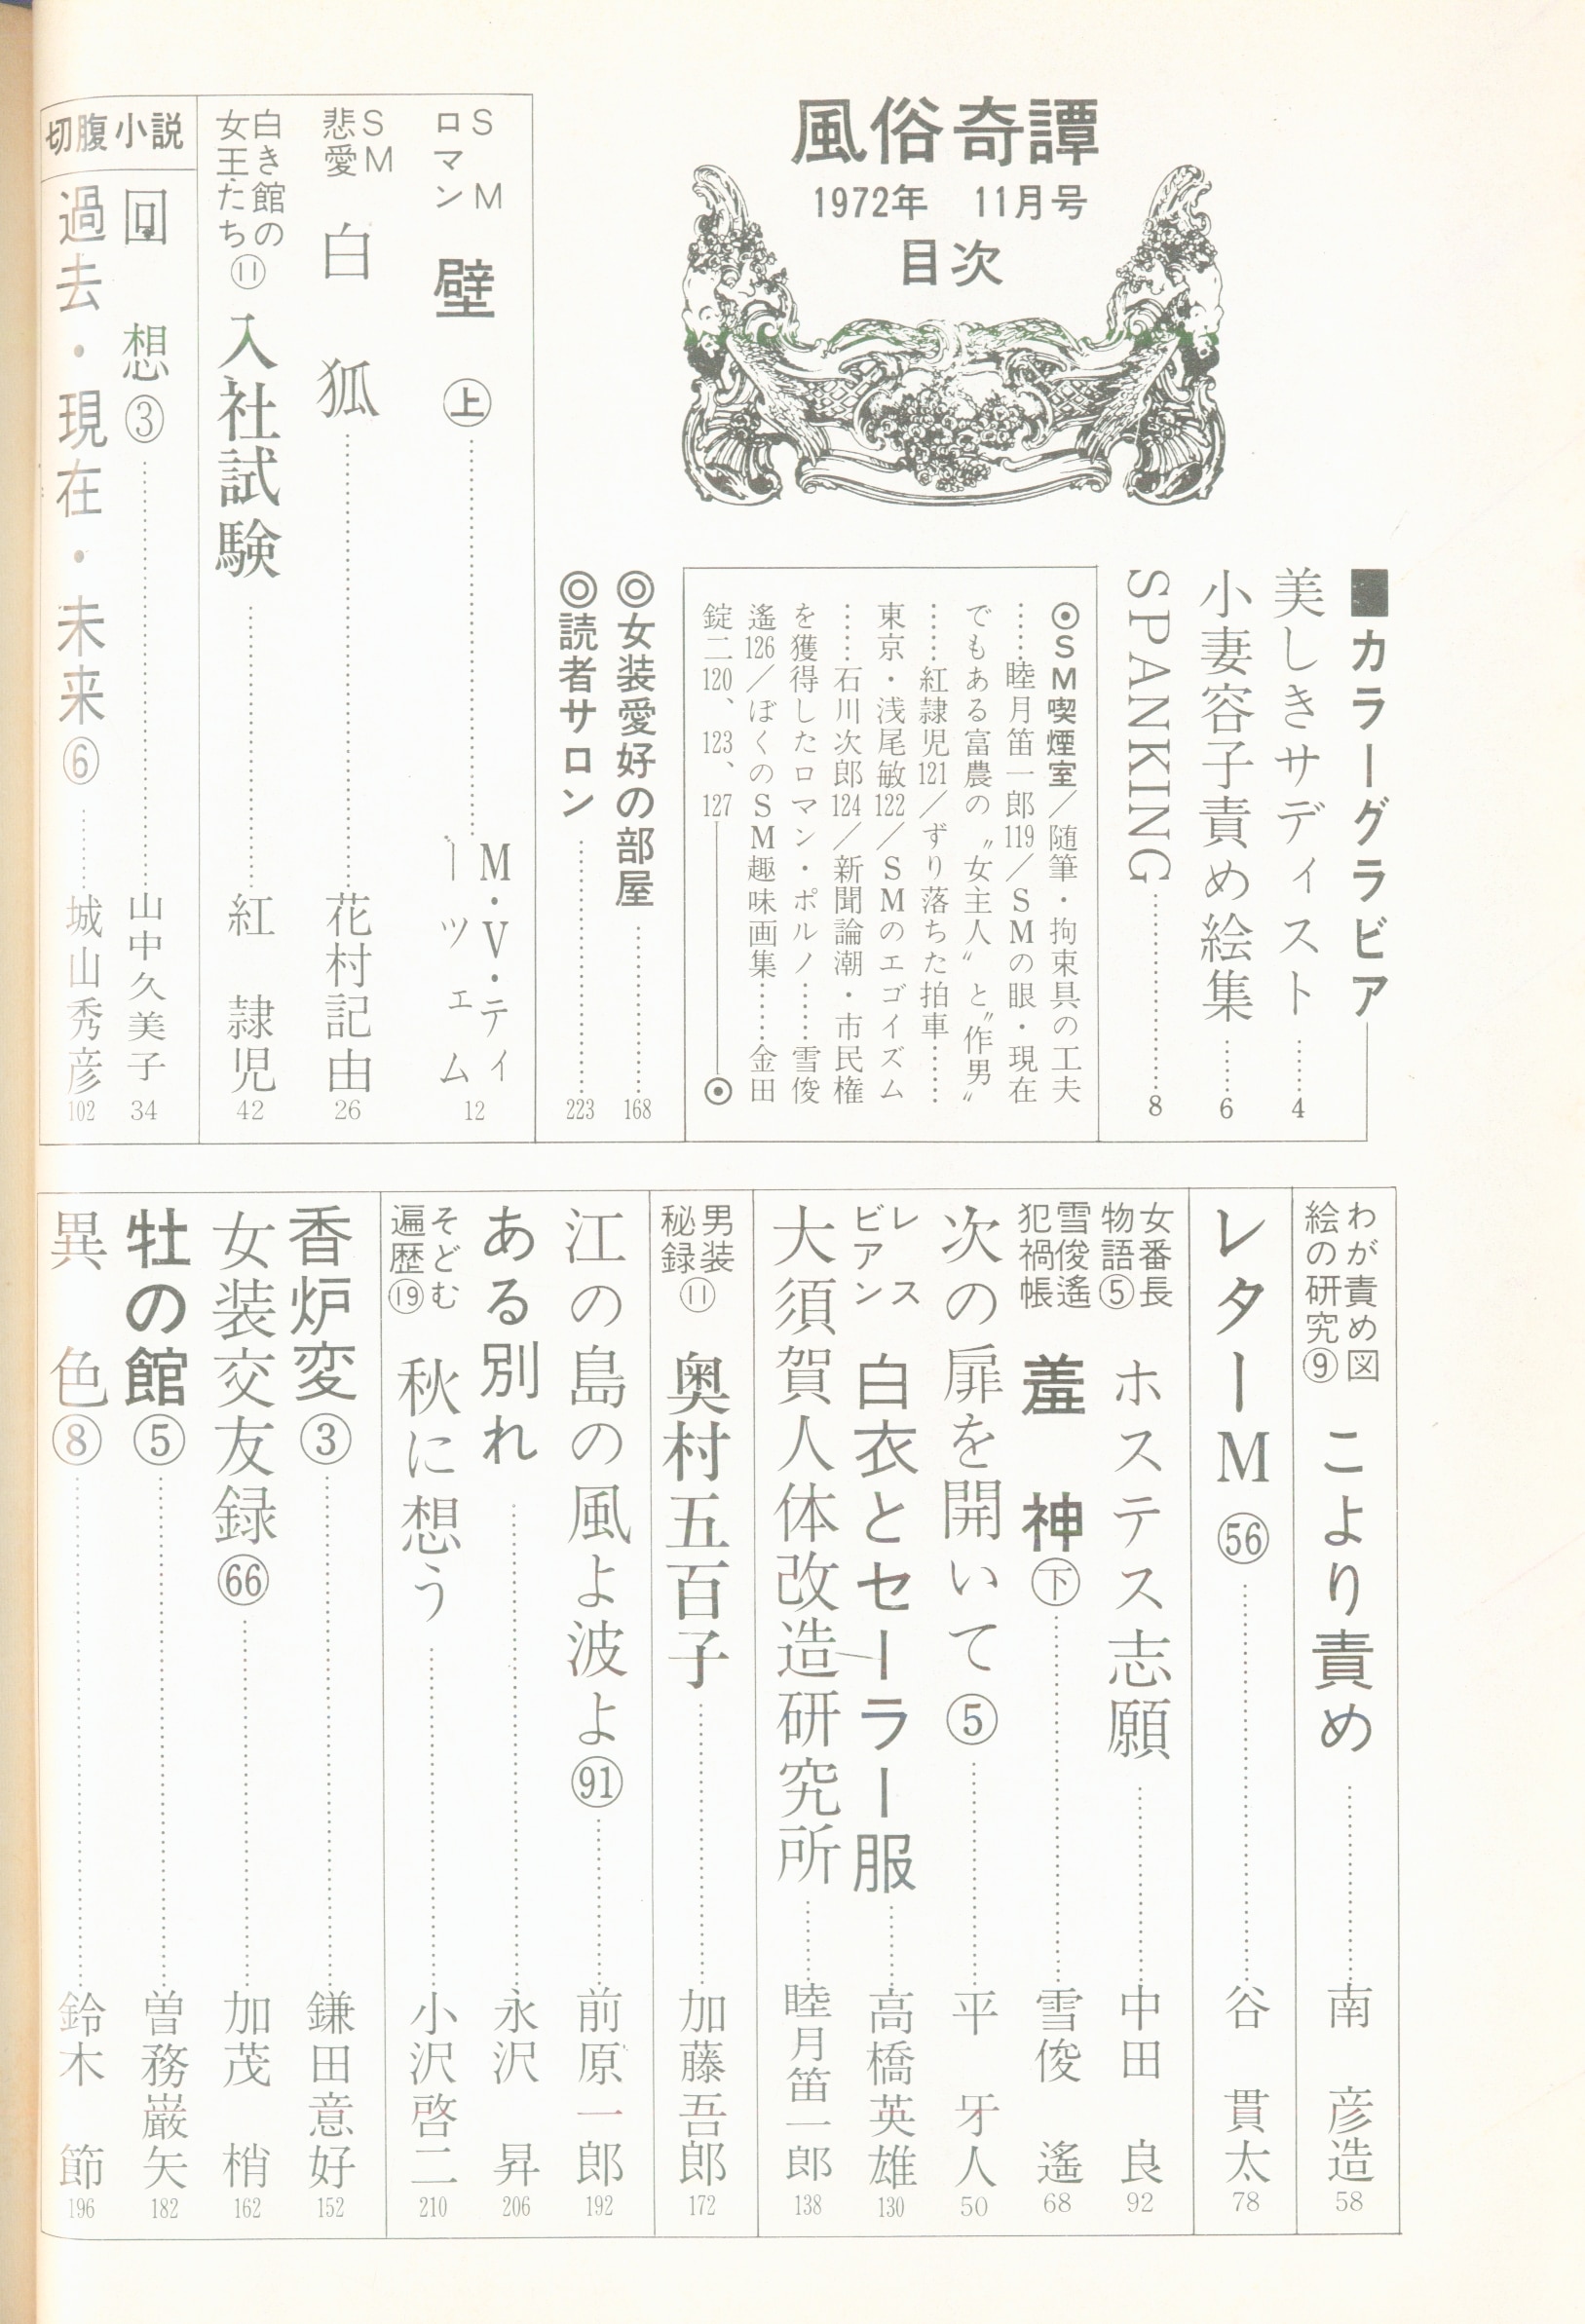 風俗奇譚
1972年 11月号
目次
■カラーグラビア
美しきサディスト……4
小妻容子責め絵集……6
SPANKING……8
⊙SM喫煙室／随筆・拘束具の工夫
……睦月笛一郎119／SMの眼・現在
でもある富農の〝女主人〟と〝作男〟
……紅隷児121／ずり落ちた拍車……
東京・浅尾敏122／SMのエゴイズム
……石川次郎124／新聞論潮・市民権
を獲得したロマン・ポルノ……雪俊
遙126／ぼくのSM趣味画集……金田
錠二120、123、127――⊙
◎女装愛好の部屋……168
◎読者サロン……223
SMロマン 壁㊤……M・V・ティーツェム 12
SM悲愛 白狐……花村記由 26
白き館の女王たち⑪ 入社試験……紅隷児 42
切腹小説
回想③……山中久美子 34
過去・現在・未来⑥……城山秀彦 102
わが責め図絵の研究⑨ こより責め……南彦造 58
レターM㊾……谷貫太 78
女番長物語⑤ ホステス志願……中田良 92
雪俊遙犯禍帳 羞神㊦……雪俊遙 68
次の扉を開いて⑤……平牙人 50
レスビアン 白衣とセーラー服……高橋英雄 130
大須賀人体改造研究所……睦月笛一郎 138
男装秘録⑪ 奥村五百子……加藤吾郎 172
江の島の風よ波よ(91)……前原一郎 192
ある別れ……永沢昇 206
そどむ遍歴⑲ 秋に想う……小沢啓二 210
香炉変③……鎌田意好 152
女装交友録(66)……加茂梢 162
牡の館⑤……曽務巌矢 182
異色⑧……鈴木節 196